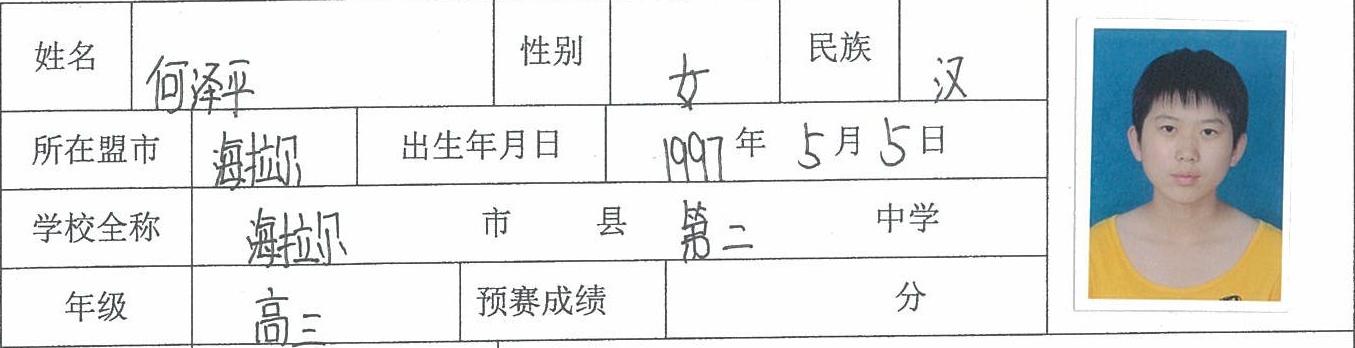 姓名 何泽平 性别 女 民族 汉
所在盟市 海拉尔 出生年月日 1997年 5月 5日
学校全称 海拉尔 市 县 第二 中学
年级 高三 预赛成绩 分